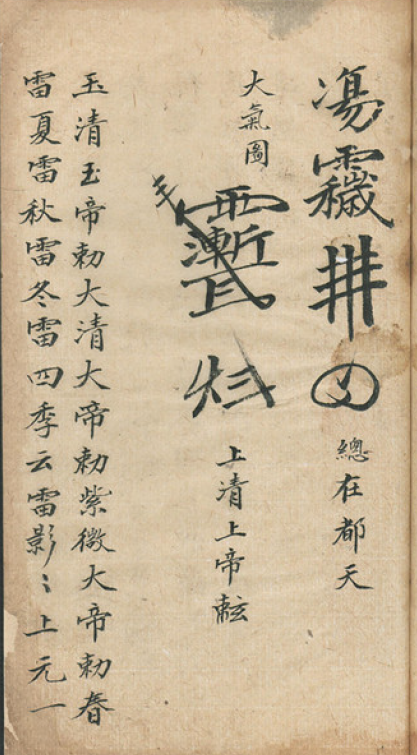 總在都天
大氣圖
上清上帝
玉清玉帝勅大清大帝勅紫微大帝勅春
雷夏雷秋雷冬雷四季云雷影〻上元一